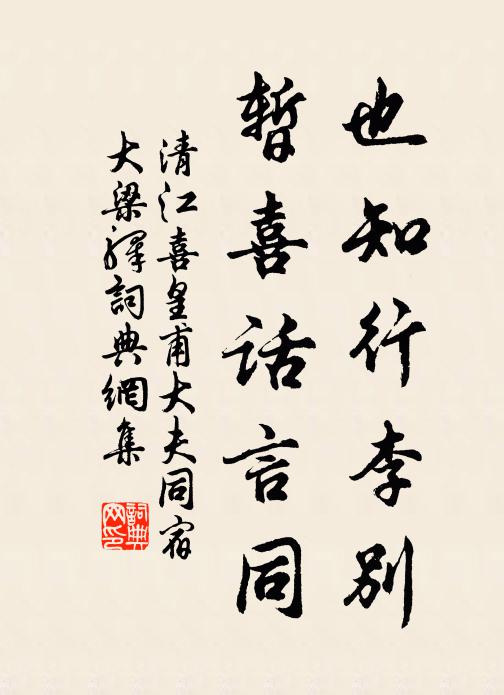 也知行李别
暫喜話言同
清江喜皇甫大夫同宿
大梁驛詞典網集
詞典
网印